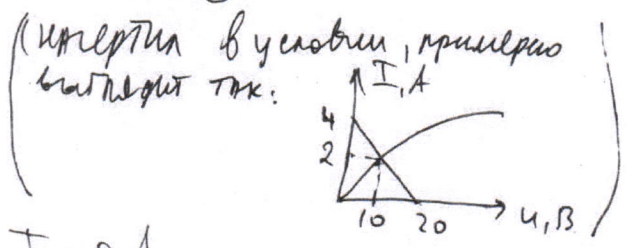 (начертил в условии, примерно
выглядит так:
I, A
4
2
10 20 U, В
)